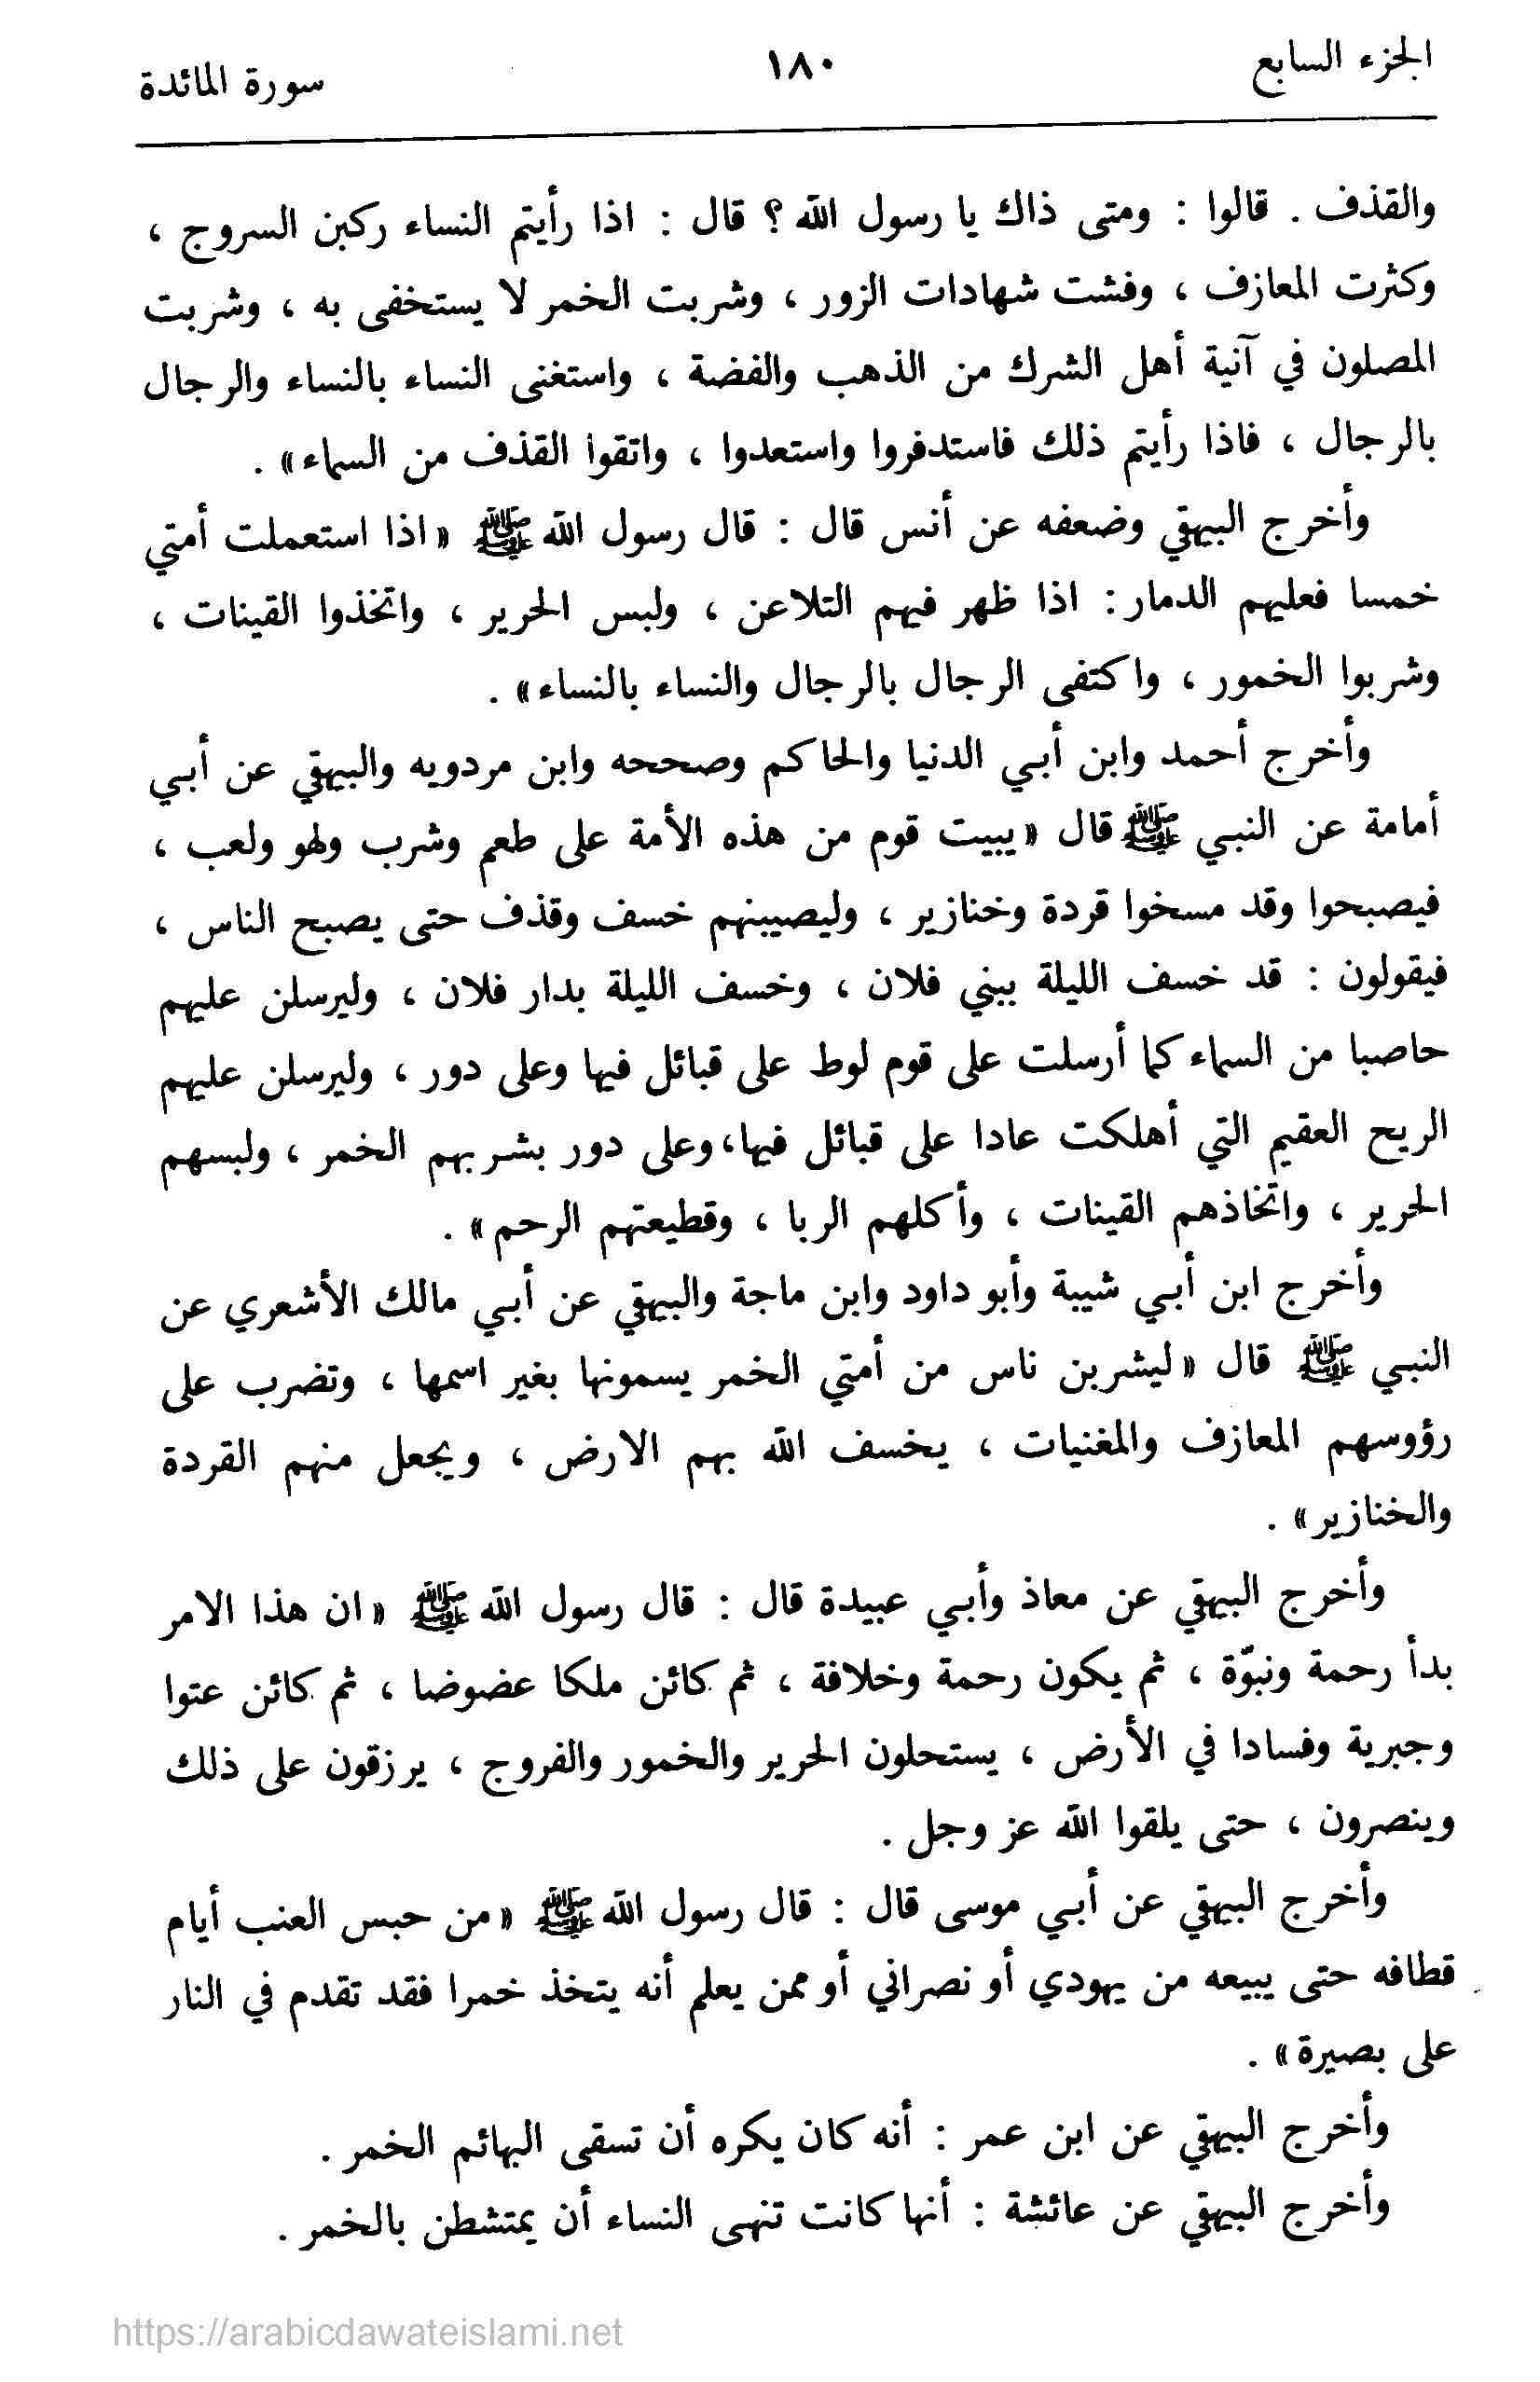 الجزء السابع ١٨٠ سورة المائدة
والقذف . قالوا : ومتى ذاك يا رسول الله ؟ قال : اذا رأيتم النساء ركبن السروج ،
وكثرت المعازف ، وفشت شهادات الزور ، وشربت الخمر لا يستخفى به ، وشربت
المصلون في آنية أهل الشرك من الذهب والفضة ، واستغنى النساء بالنساء والرجال
بالرجال ، فاذا رأيتم ذلك فاستدفروا واستعدوا ، واتقوا القذف من السماء» .
وأخرج البيهقي وضعفه عن أنس قال : قال رسول الله ﷺ «اذا استعملت أمتي
خمسا فعليهم الدمار : اذا ظهر فيهم التلاعن ، ولبس الحرير ، واتخذوا القينات ،
وشربوا الخمور ، واكتفى الرجال بالرجال والنساء بالنساء» .
وأخرج أحمد وابن أبي الدنيا والحاكم وصححه وابن مردويه والبيهقي عن أبي
أمامة عن النبي ﷺ قال «يبيت قوم من هذه الأمة على طعم وشرب ولهو ولعب ،
فيصبحوا وقد مسخوا قردة وخنازير ، وليصيبنهم خسف وقذف حتى يصبح الناس ،
فيقولون : قد خسف الليلة ببني فلان ، وخسف الليلة بدار فلان ، وليرسلن عليهم
حاصبا من السماء كما أرسلت على قوم لوط على قبائل فيها وعلى دور ، وليرسلن عليهم
الريح العقيم التي أهلكت عادا على قبائل فيها، وعلى دور بشربهم الخمر ، ولبسهم
الحرير ، واتخاذهم القينات ، وأكلهم الربا ، وقطيعتهم الرحم» .
وأخرج ابن أبي شيبة وأبو داود وابن ماجة والبيهقي عن أبي مالك الأشعري عن
النبي ﷺ قال «ليشربن ناس من أمتي الخمر يسمونها بغير اسمها ، وتضرب على
رؤوسهم المعازف والمغنيات ، يخسف الله بهم الارض ، ويجعل منهم القردة
والخنازير» .
وأخرج البيهقي عن معاذ وأبي عبيدة قال : قال رسول الله ﷺ «ان هذا الامر
بدأ رحمة ونبوّة ، ثم يكون رحمة وخلافة ، ثم كائن ملكا عضوضا ، ثم كائن عتوا
وجبرية وفسادا في الأرض ، يستحلون الحرير والخمور والفروج ، يرزقون على ذلك
وينصرون ، حتى يلقوا الله عز وجل .
وأخرج البيهقي عن أبي موسى قال : قال رسول الله ﷺ «من حبس العنب أيام
قطافه حتى يبيعه من يهودي أو نصراني أو ممن يعلم أنه يتخذ خمرا فقد تقدم في النار
على بصيرة» .
وأخرج البيهقي عن ابن عمر : أنه كان يكره أن تسقى البهائم الخمر .
وأخرج البيهقي عن عائشة : أنها كانت تنهى النساء أن يمتشطن بالخمر .
https://arabicdawateislami.net